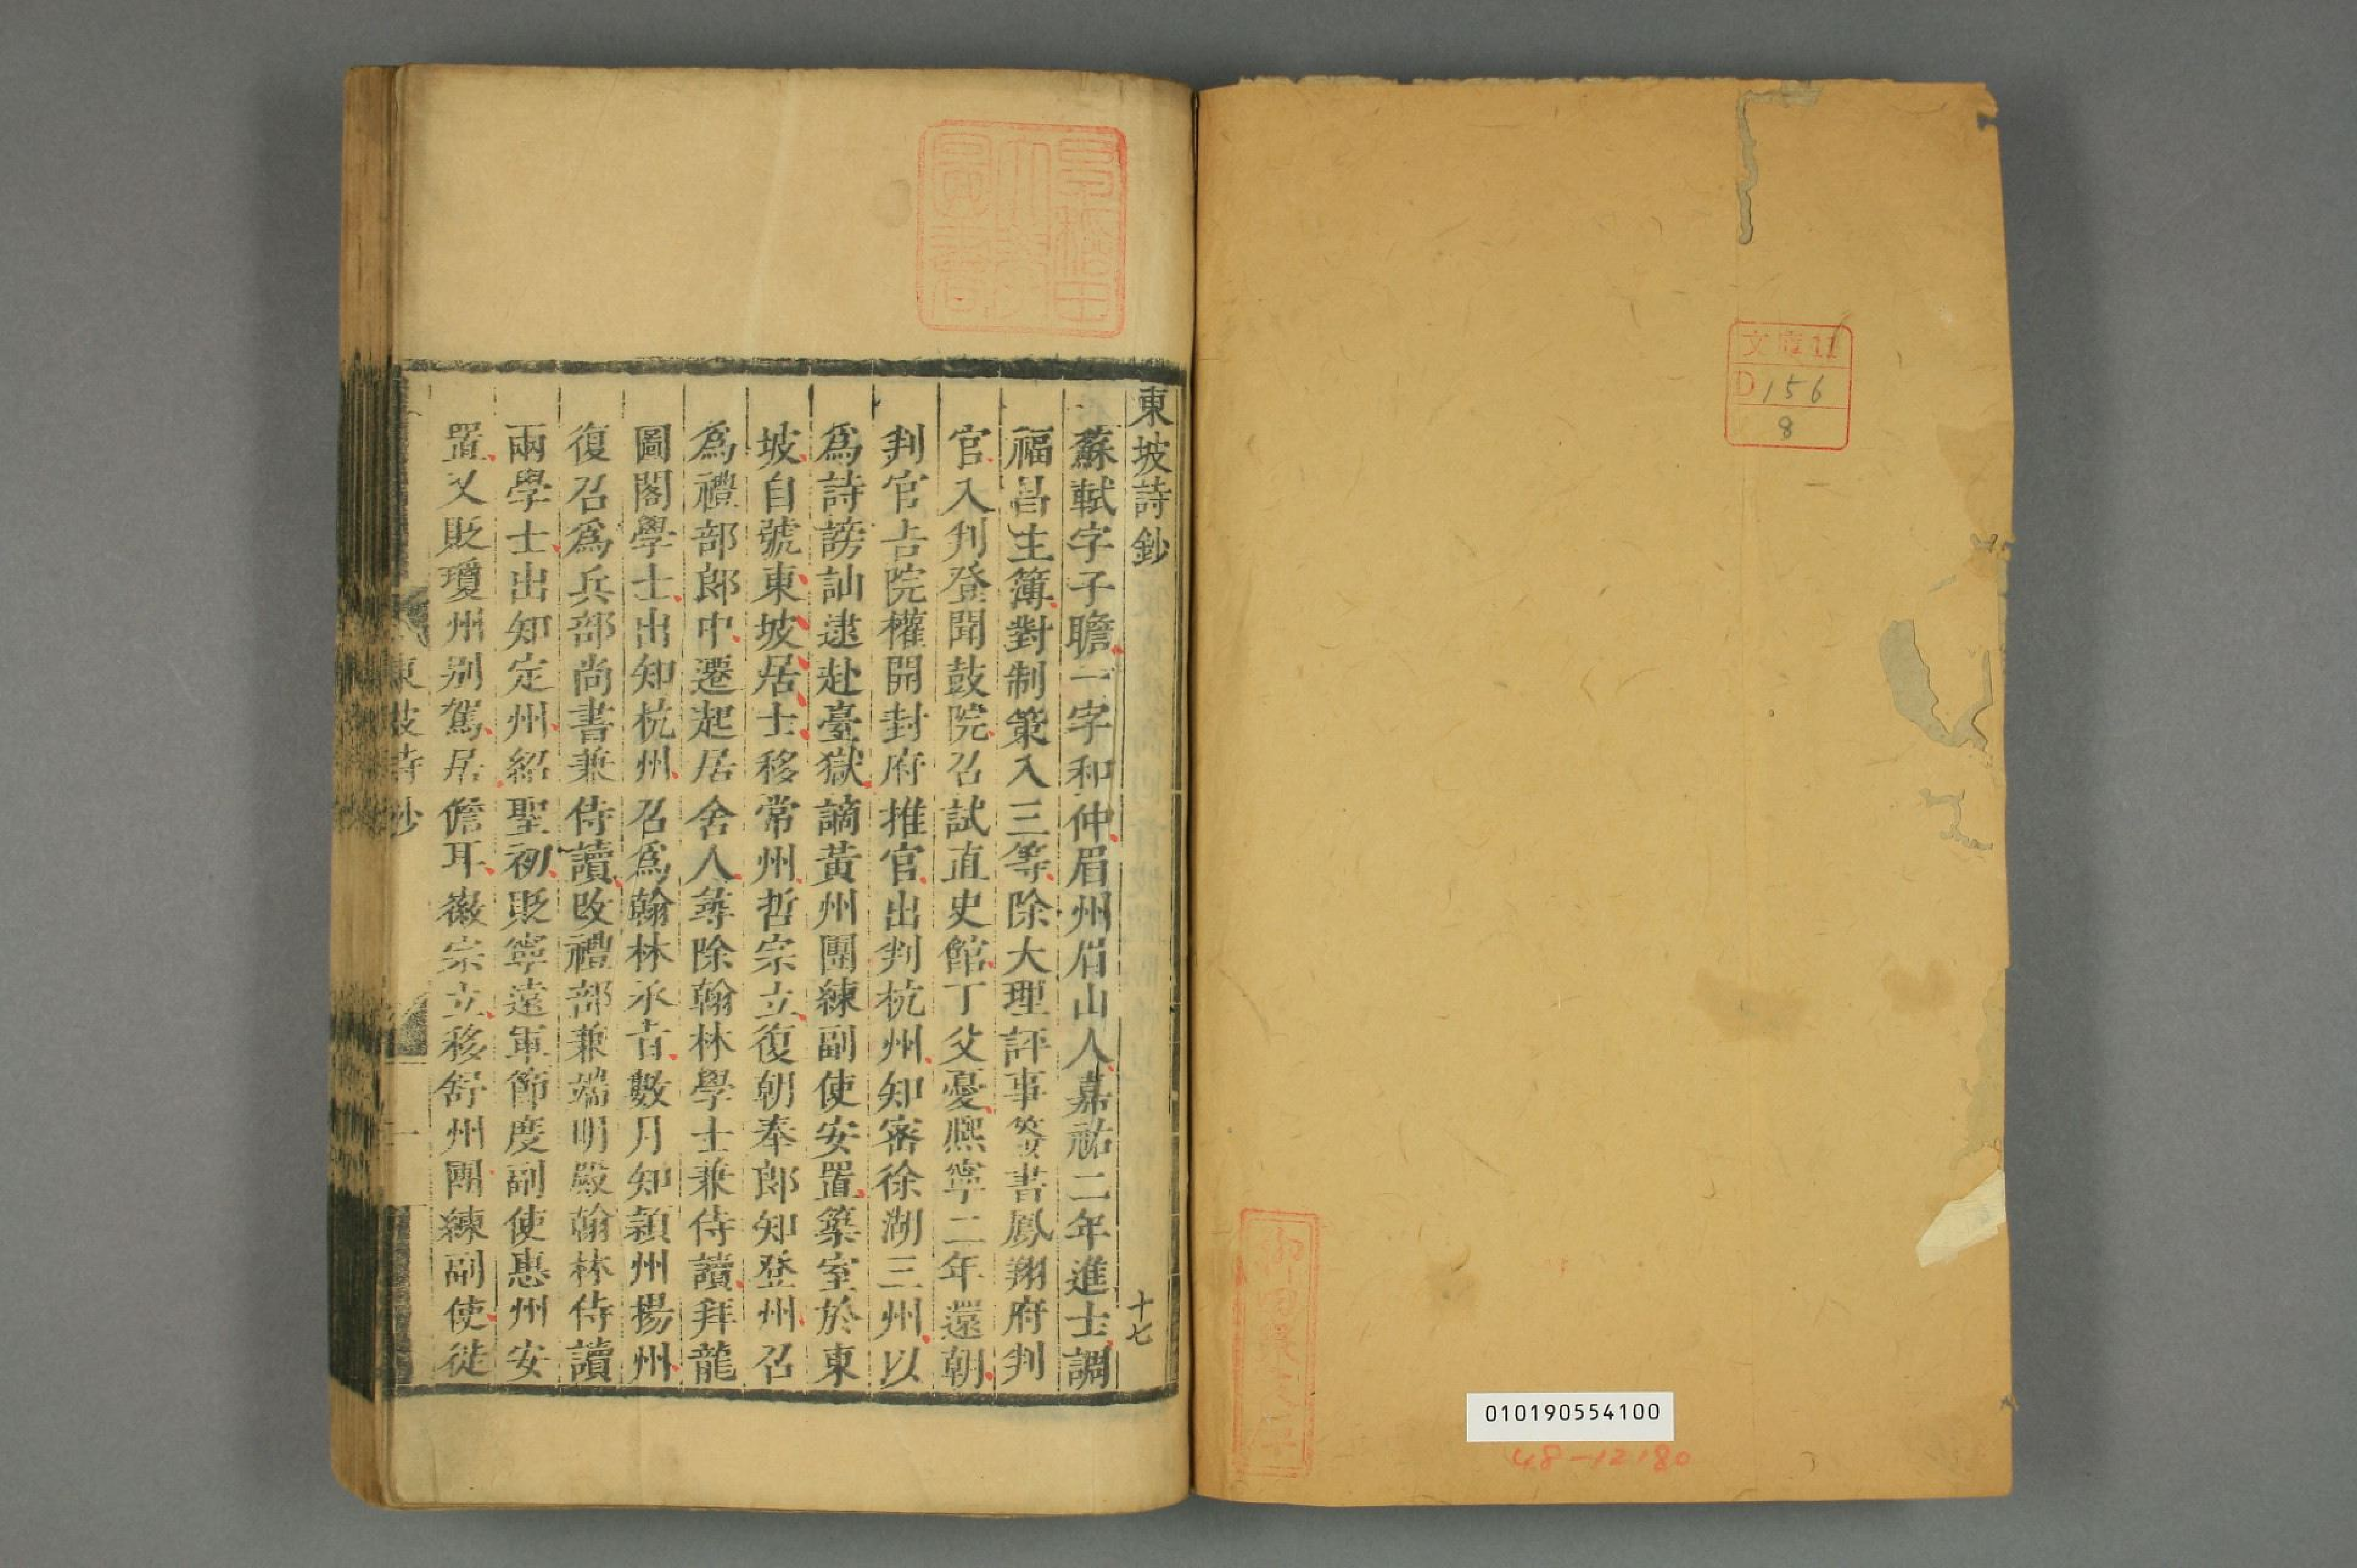 文庫11
D156
8
010190554100
48-12180
東坡詩鈔
十七
蘇軾字子瞻一字和仲眉州眉山人嘉祐二年進士調
福昌主簿對制策入三等除大理評事簽書鳳翔府判
官入判登聞鼓院召試直史館丁父憂熙寧二年還朝
判官吿院權開封府推官出判杭州知密徐湖三州以
爲詩謗訕逮赴臺獄謫黃州團練副使安置築室於東
坡自號東坡居士移常州哲宗立復朝奉郎知登州召
爲禮部郎中遷起居舍人尋除翰林學士兼侍讀拜龍
圖閣學士出知杭州召爲翰林承旨數月知潁州揚州
復召爲兵部尚書兼侍讀改禮部兼端明殿翰林侍讀
兩學士出知定州紹聖初貶寧遠軍節度副使惠州安
置又貶瓊州别駕居儋耳徽宗立移舒州團練副使徙
東坡詩鈔
一
早稲田大学圖書